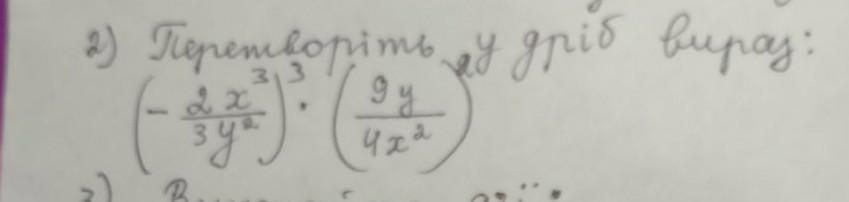 2) Перетворіть у дріб вираз:
(- 2x³/3y²)³ · (9y/4x²)²